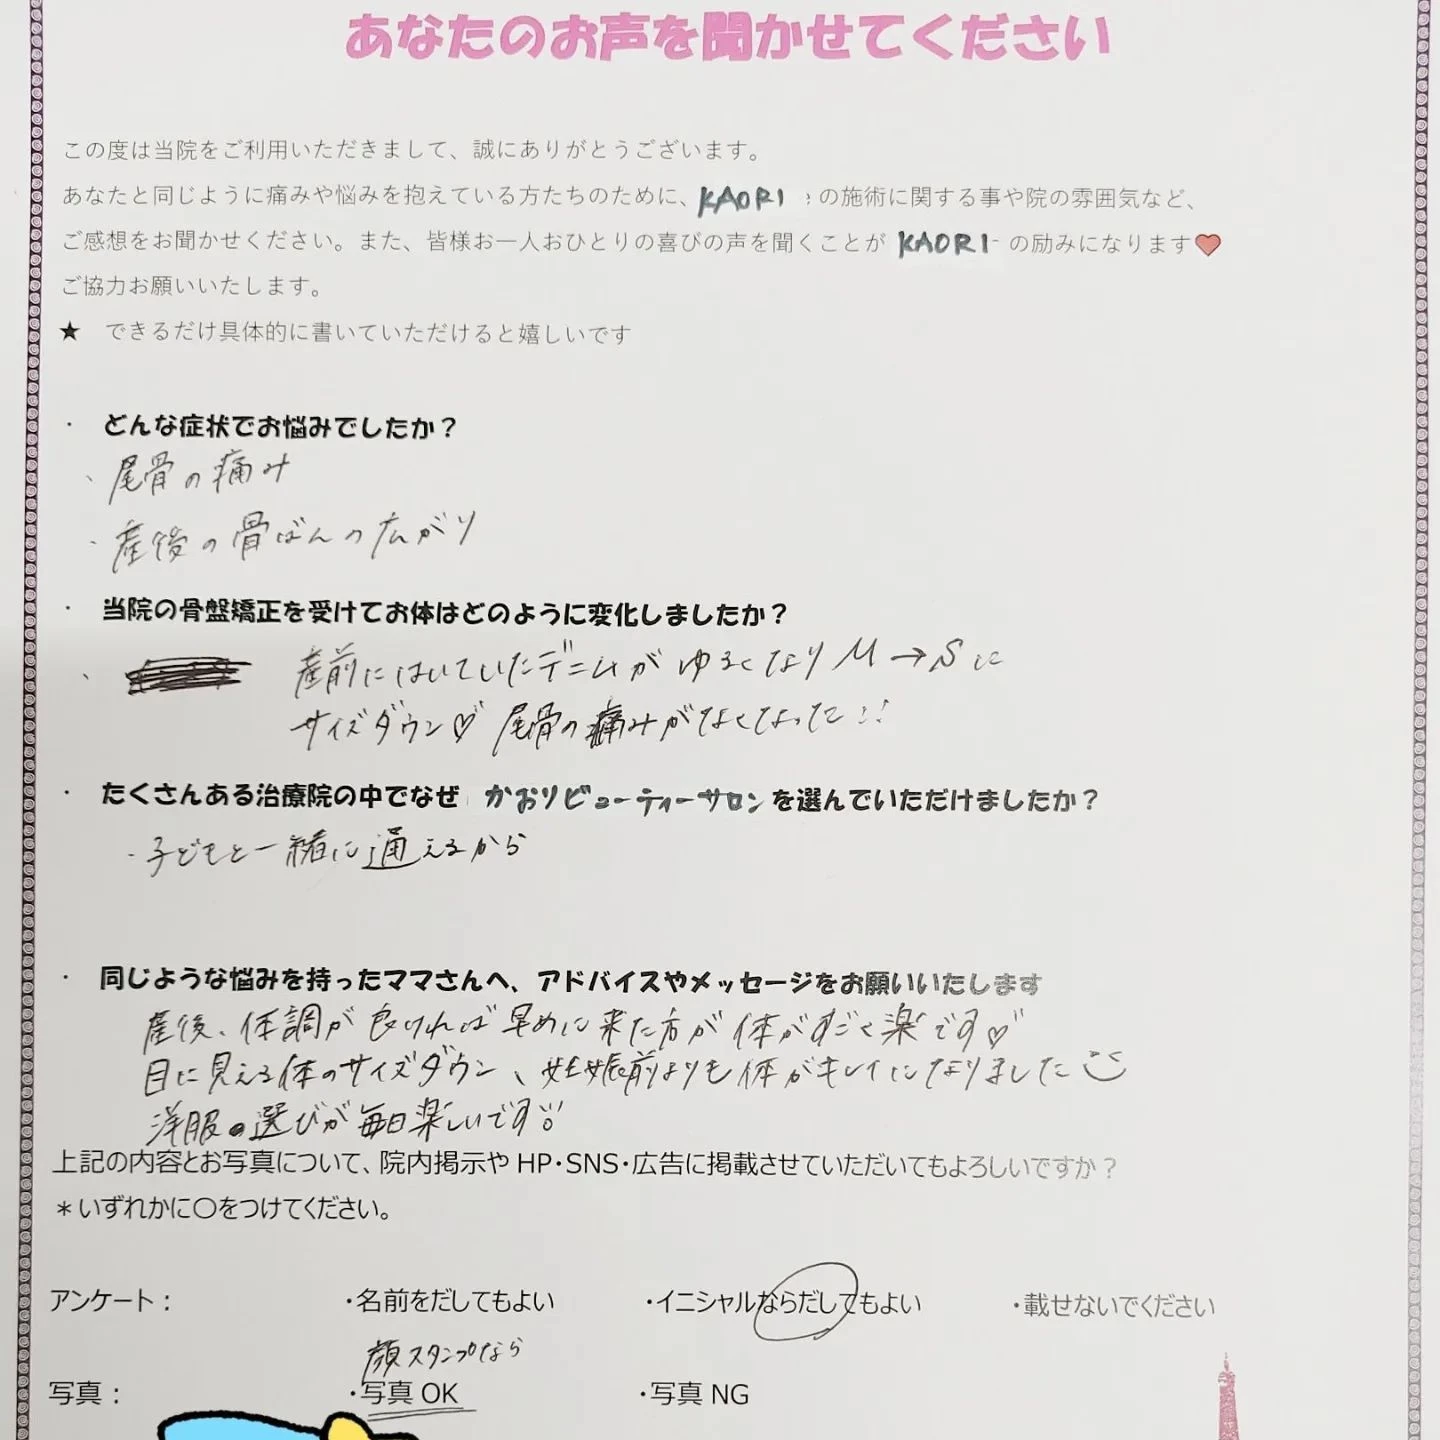 あなたのお声を聞かせてください
この度は当院をご利用いただきまして、誠にありがとうございます。
あなたと同じように痛みや悩みを抱えている方たちのために、KAORI の施術に関する事や院の雰囲気など、
ご感想をお聞かせください。また、皆様お一人おひとりの喜びの声を聞くことが KAORI の励みになります♥
ご協力お願いいたします。
★ できるだけ具体的に書いていただけると嬉しいです
・ どんな症状でお悩みでしたか？
・尾骨の痛み
・産後の骨ばんの広がり
・ 当院の骨盤矯正を受けてお体はどのように変化しましたか？
・ 産前にはいていたデニムがゆるくなりM→Sに
サイズダウン♡ 尾骨の痛みがなくなった!!
・ たくさんある治療院の中でなぜ かおりビューティーサロンを選んでいただけましたか？
・子どもと一緒に通えるから
・ 同じような悩みを持ったママさんへ、アドバイスやメッセージをお願いいたします
産後、体調が良ければ早めに来た方が体がすごく楽です♡
目に見える体のサイズダウン、妊娠前よりも体がキレイになりました
洋服の選びが毎日楽しいです!!
上記の内容とお写真について、院内掲示や HP・SNS・広告に掲載させていただいてもよろしいですか？
＊いずれかに〇をつけてください。
アンケート： ・名前をだしてもよい ・イニシャルならだしてもよい ・載せないでください
顔スタンプなら
写真： ・写真 OK ・写真 NG